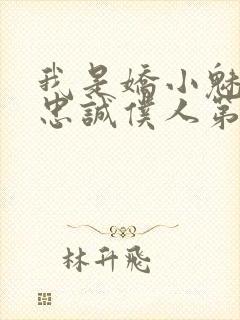 我是嬌小魅
忠誠僕人第
林升飛